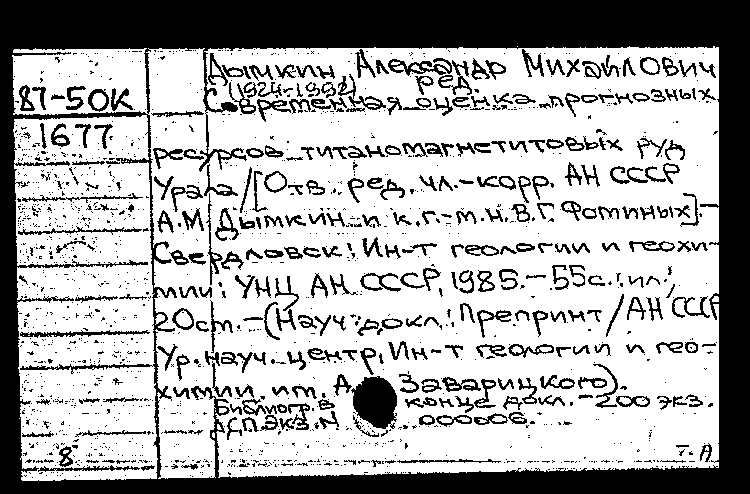 Дымкин, Александр Михайлович
(1924-1992) ред.
87-50К
Современная оценка прогнозных
1677
ресурсов титаномагнетитовых руд
Урала/[Отв. ред. чл.-корр. АН СССР
А.М. Дымкин и к.г.-м.н. В.Г. Фоминых].-
Свердловск: Ин-т геологии и геохи-
мии: УНЦ АН СССР, 1985.-55с.:ил.;
20см.-(Науч. докл.: Препринт/АН СССР
Ур. науч. центр, Ин-т геологии и гео-
химии им. А. Заварицкого).
Библиогр. в конце докл.-200 экз.
ДСП. экз. N 000006.
8
т.А